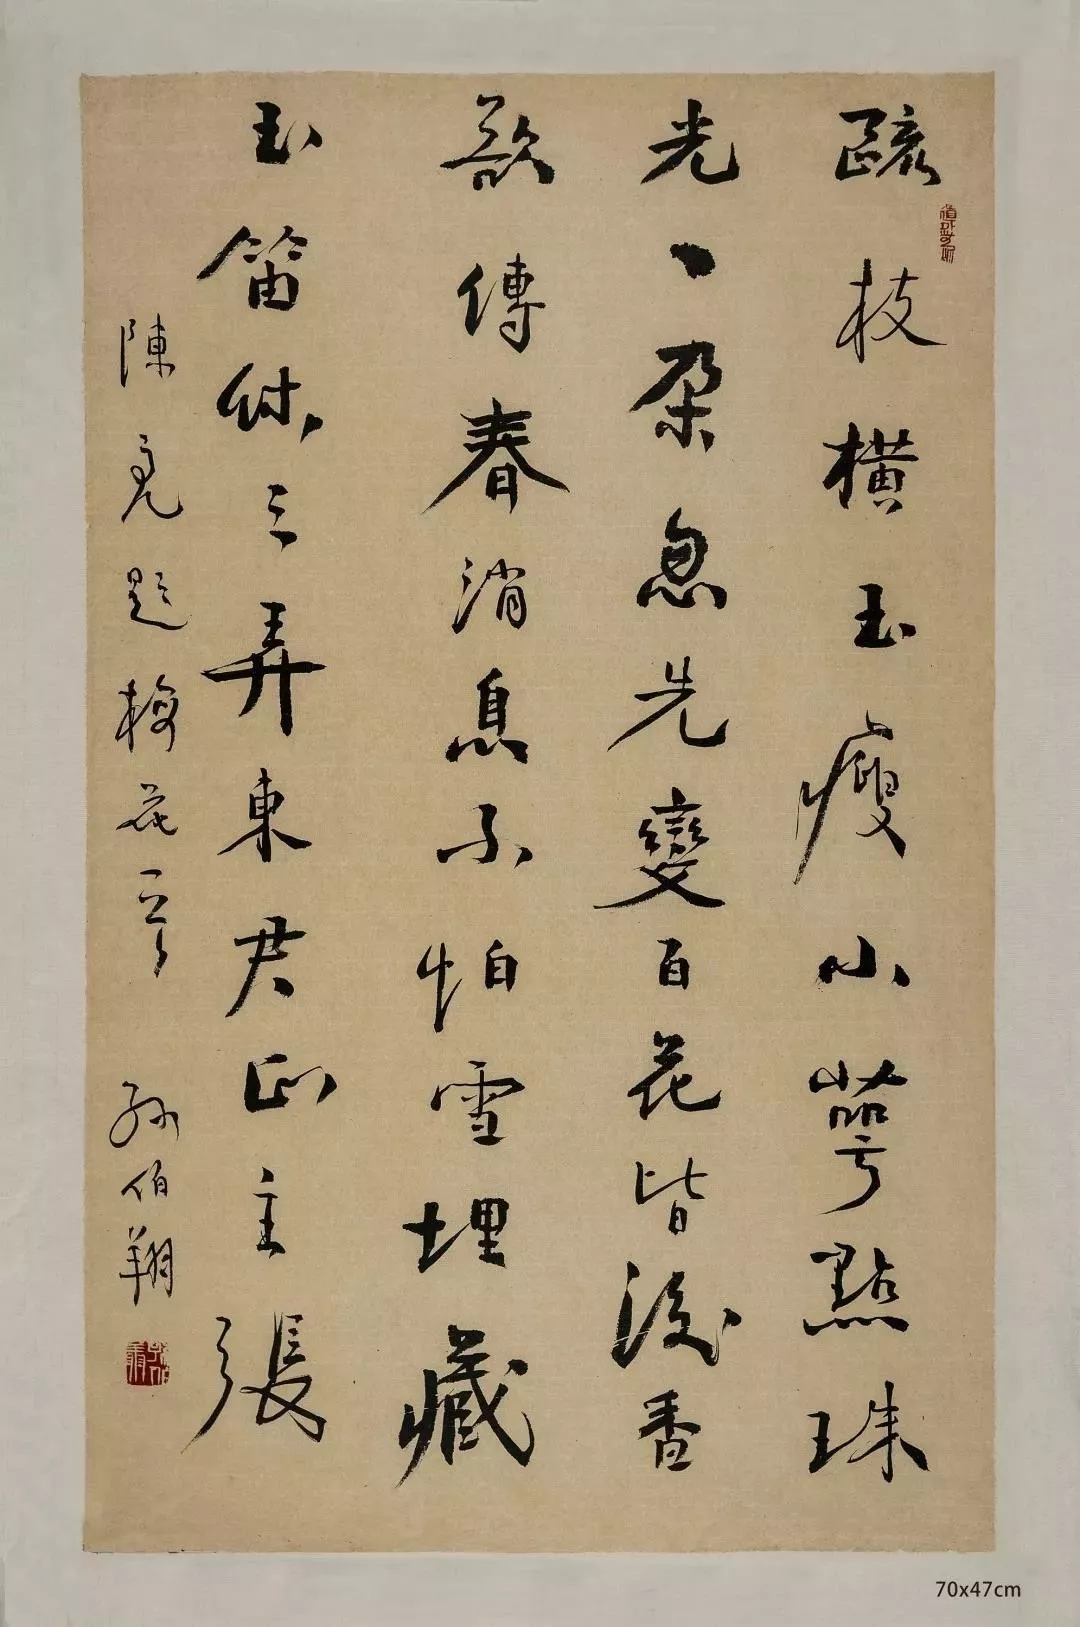 疏枝橫玉瘦小萼點珠
光一朵忽先變百花皆後香
欲傳春消息不怕雪埋藏
玉笛休三弄東君正主張
陳亮題梅花 孫伯翔
70x47cm